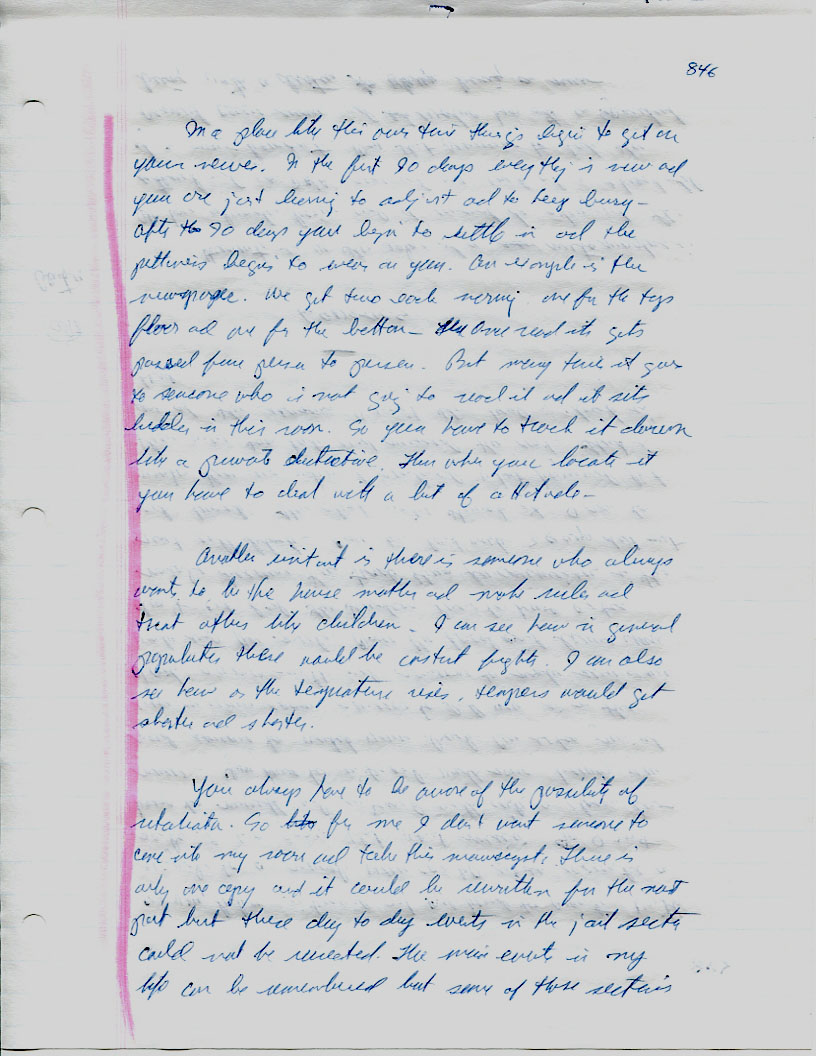 846
In a place like this over time things begin to get on
your nerves. In the first 90 days everything is new and
you are just learning to adjust and to keep busy –
after the 90 days you begin to settle in and the
pettiness begins to wear on you. An example is the
newspaper. We get two each morning. one for the top
floor and one for the bottom – One read it gets
passed from person to person. But many times it goes
to someone who is not going to read it and it sits
hidden in this room. So you have to track it down
like a private detective. Then when you locate it
you have to deal with a lot of attitude –
Another irritant is there is someone who always
wants to be the house mother and make rules and
treat others like children. I can see how in general
population there would be constant fights. I can also
see how as the temperature rises, tempers would get
shorter and shorter.
You always have to be aware of the possibility of
retaliation. So for me I don't want someone to
come into my room and take this manuscript. There is
only one copy and it could be rewritten for the most
part but these day to day events in the jail section
could not be recreated. The main events in my
life can be remembered but some of those sections